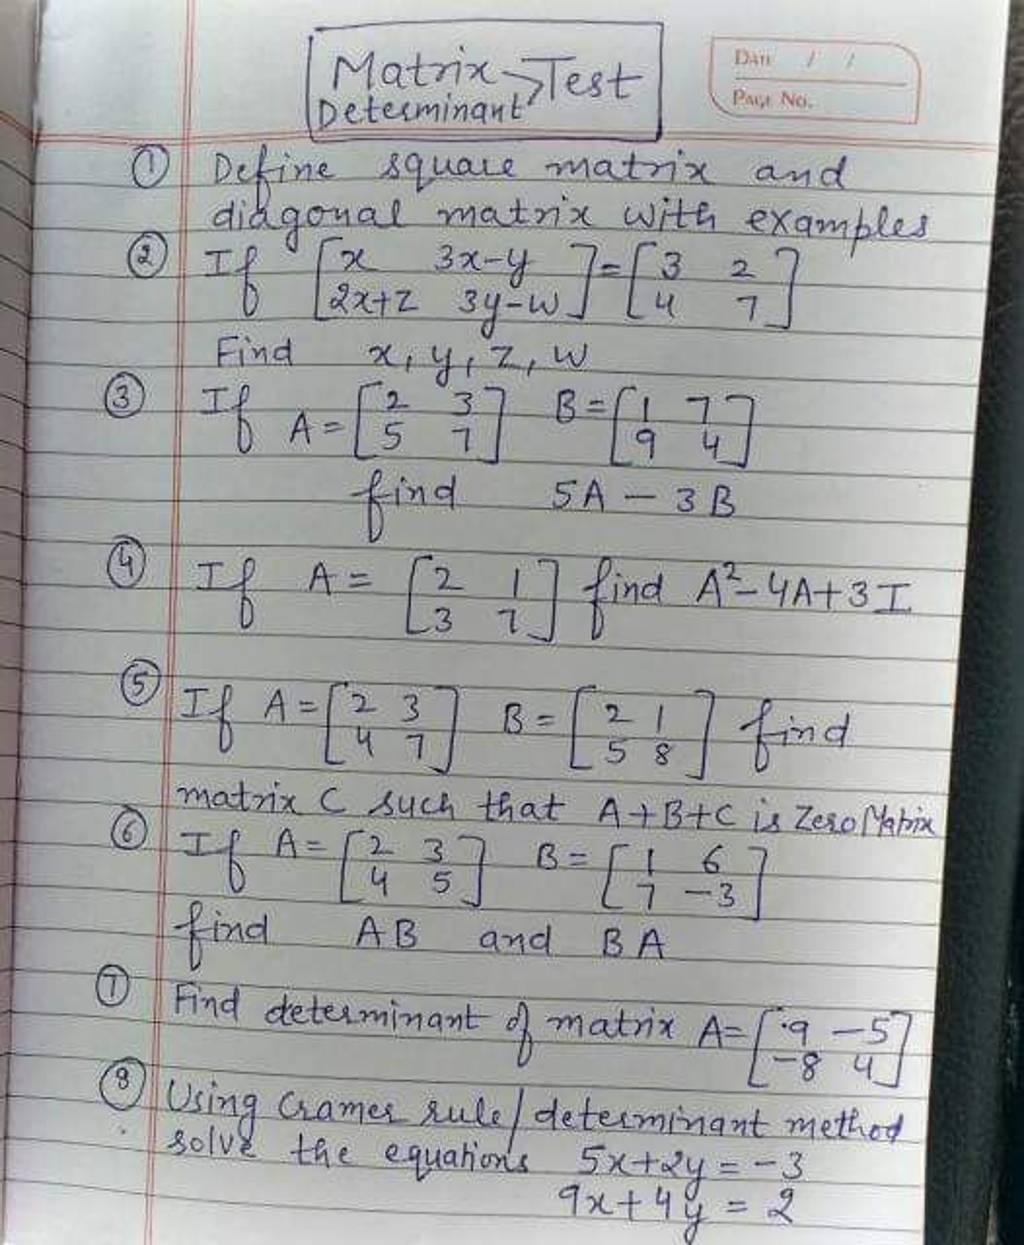 Matrix
Determinant > Test
DATE / /
PAGE NO.
① Define square matrix and
diagonal matrix with examples
② If [x 3x-y] = [3 2]
[2x+z 3y-w] [4 7]
Find x, y, z, w
③ If A = [2 3] B = [1 7]
[5 7] [9 4]
find 5A - 3B
④ If A = [2 1] find A² - 4A + 3I
[3 7]
⑤ If A = [2 3] B = [2 1] find
[4 7] [5 8]
matrix C such that A+B+C is Zero Matrix
⑥ If A = [2 3] B = [1 6]
[4 5] [7 -3]
find AB and BA
⑦ Find determinant of matrix A = [9 -5]
[-8 4]
⑧ Using Cramer rule/determinant method
solve the equations 5x+2y = -3
9x+4y = 2